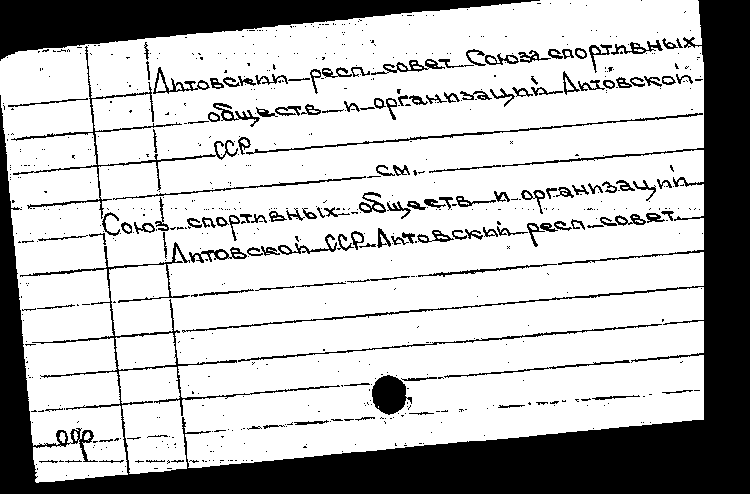 Литовский респ. совет Союза спортивных
обществ и организаций Литовской
ССР.
см.
Союз спортивных обществ и организаций
Литовской ССР. Литовский респ. совет.